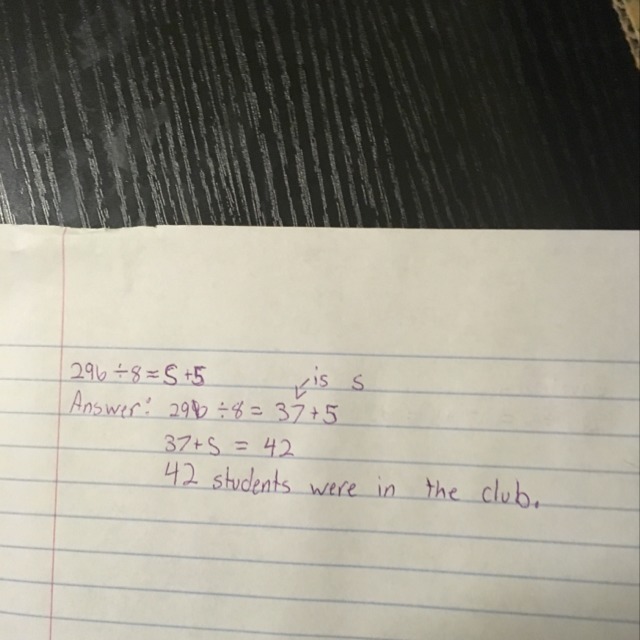 296 ÷ 8 = S + 5
is S
Answer: 296 ÷ 8 = 37 + 5
37 + 5 = 42
42 students were in the club.